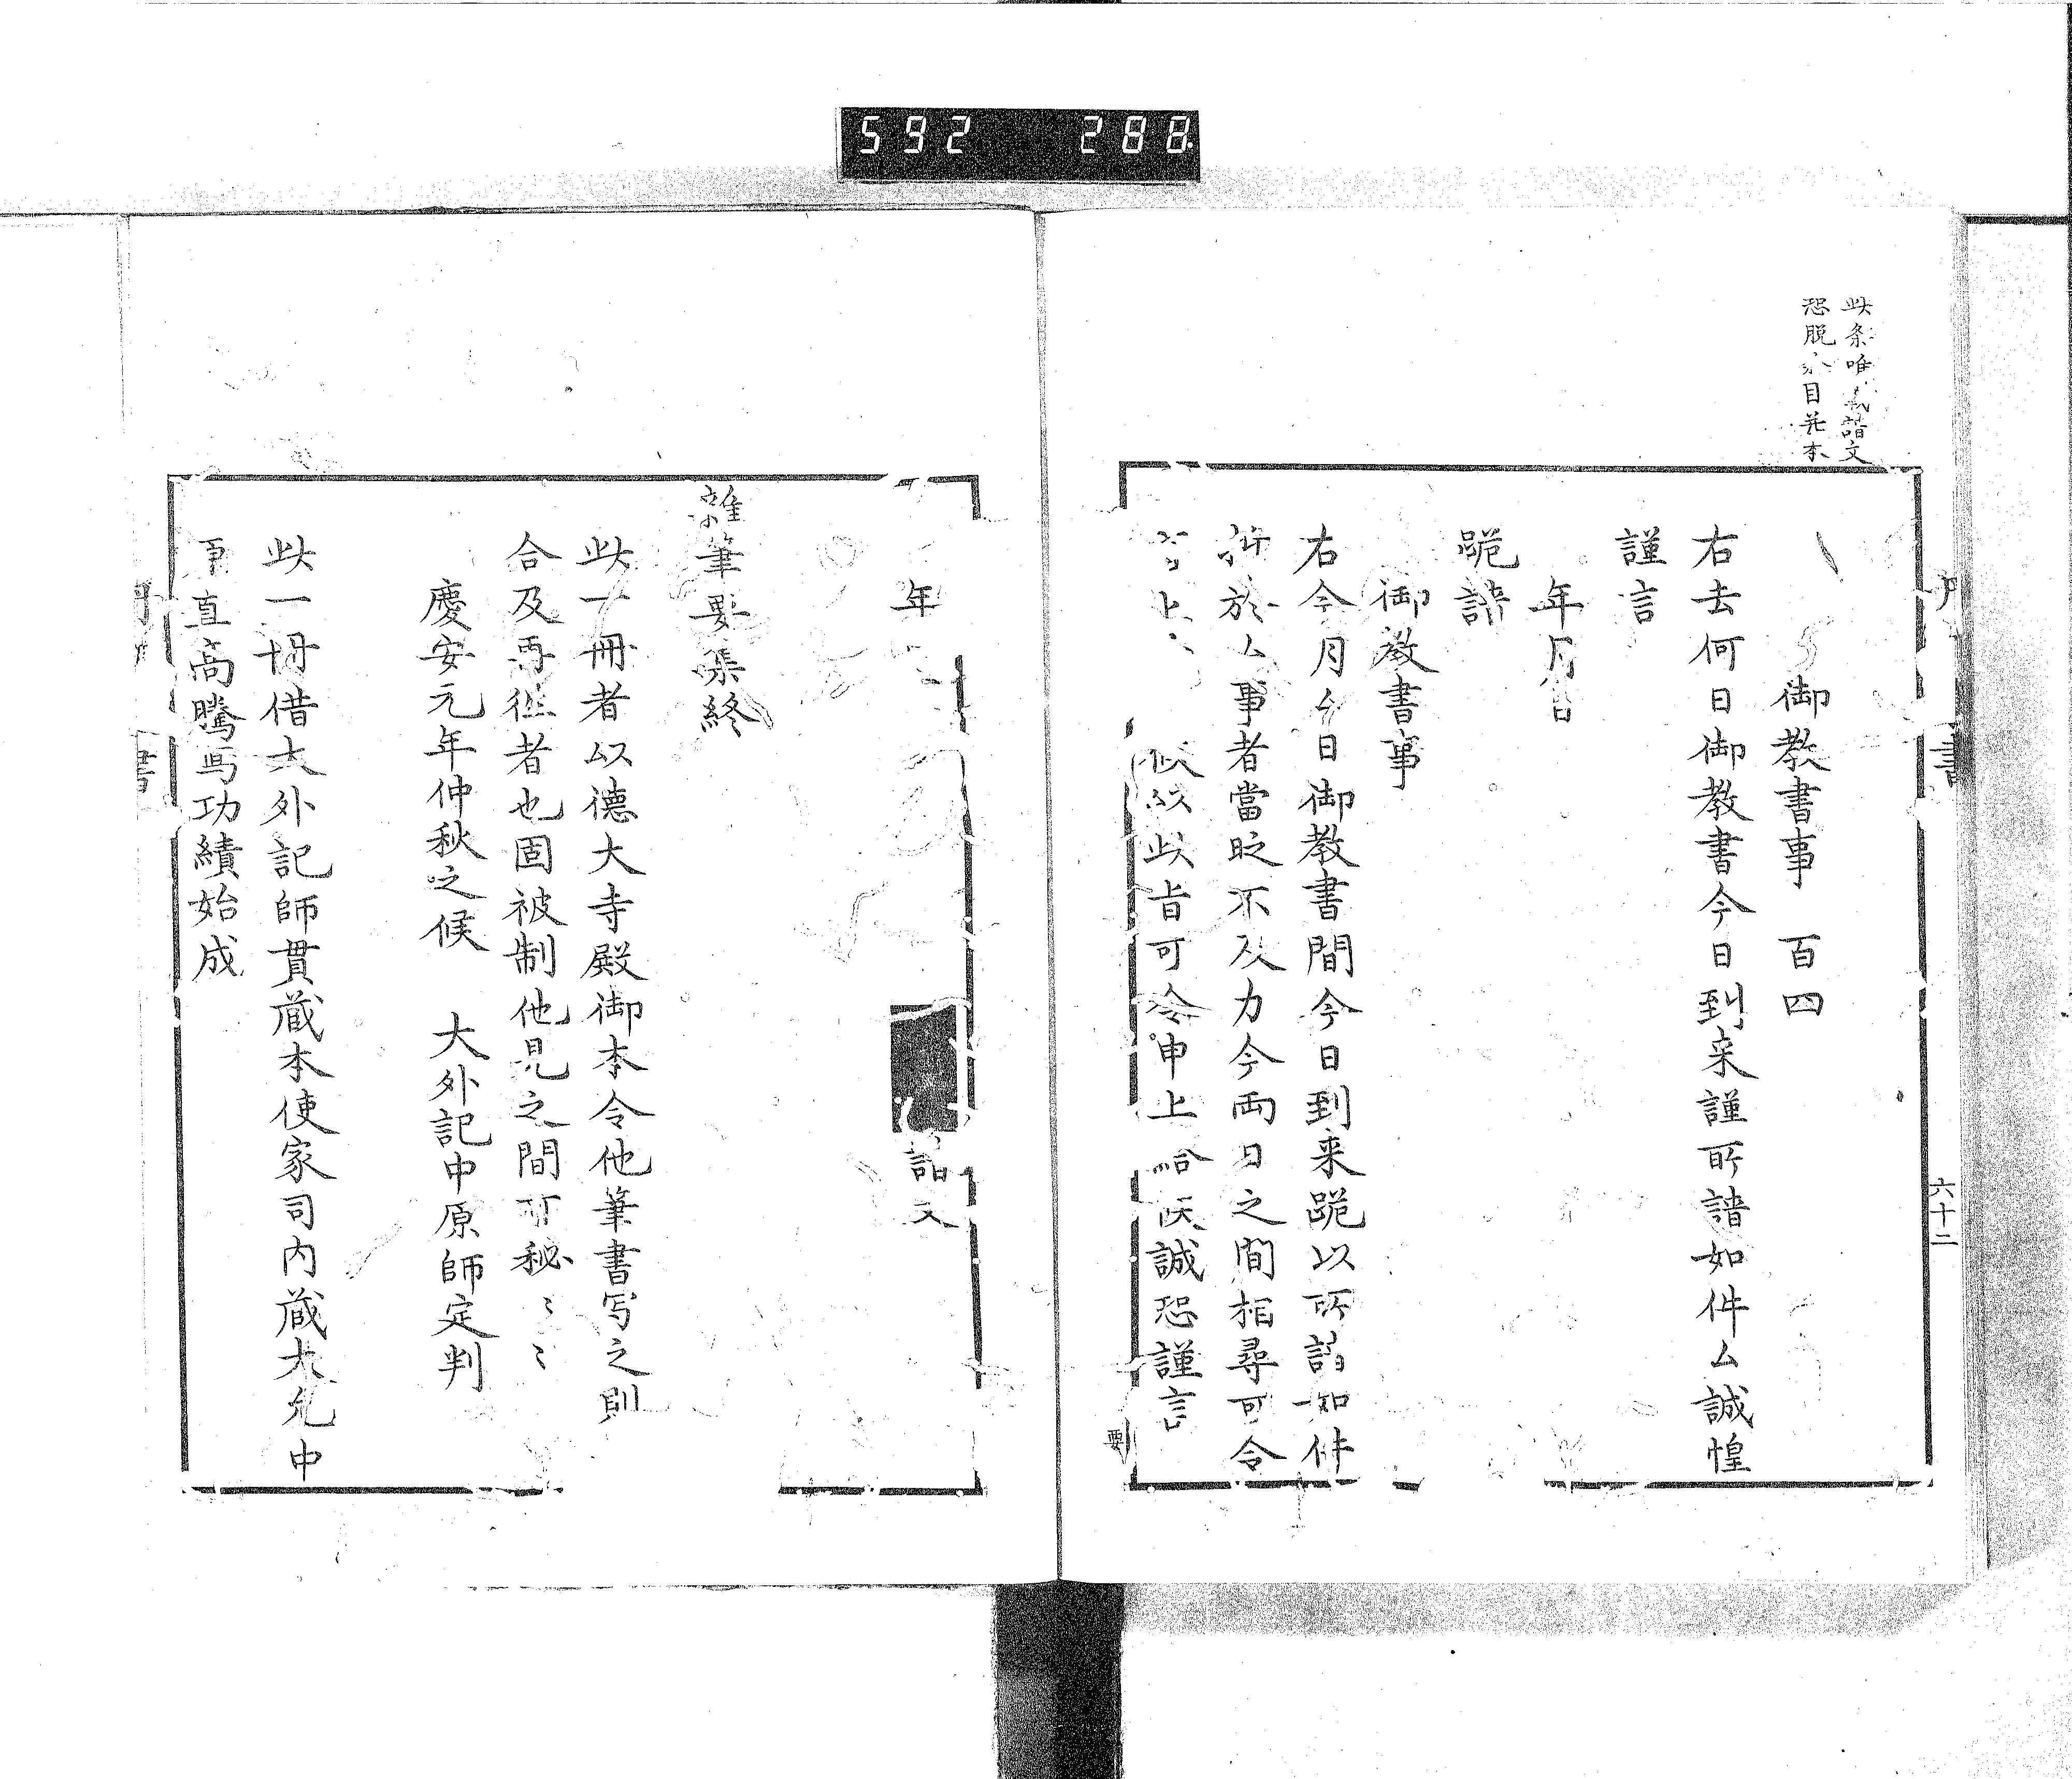 592 288
此条唯
恐脱 目
御教書事 百四
右去何日御教書今日到来謹所請如件ム誠惶
謹言
年月日
跪請
御教書事
右今月ム日御教書間今日到来跪以所請如件
抑於ム事者當時不及力今両日之間相尋可令
以此旨可令申上給候誠恐謹言
要
六十二
年
請文
雑筆要集終
此一冊者以德大寺殿御本令他筆書写之則
合及再徃者也固被制他見之間可秘〻〻
慶安元年仲秋之候 大外記中原師定判
此一冊借大外記師貫蔵本使家司内蔵大允中
原直高騰写功績始成
書